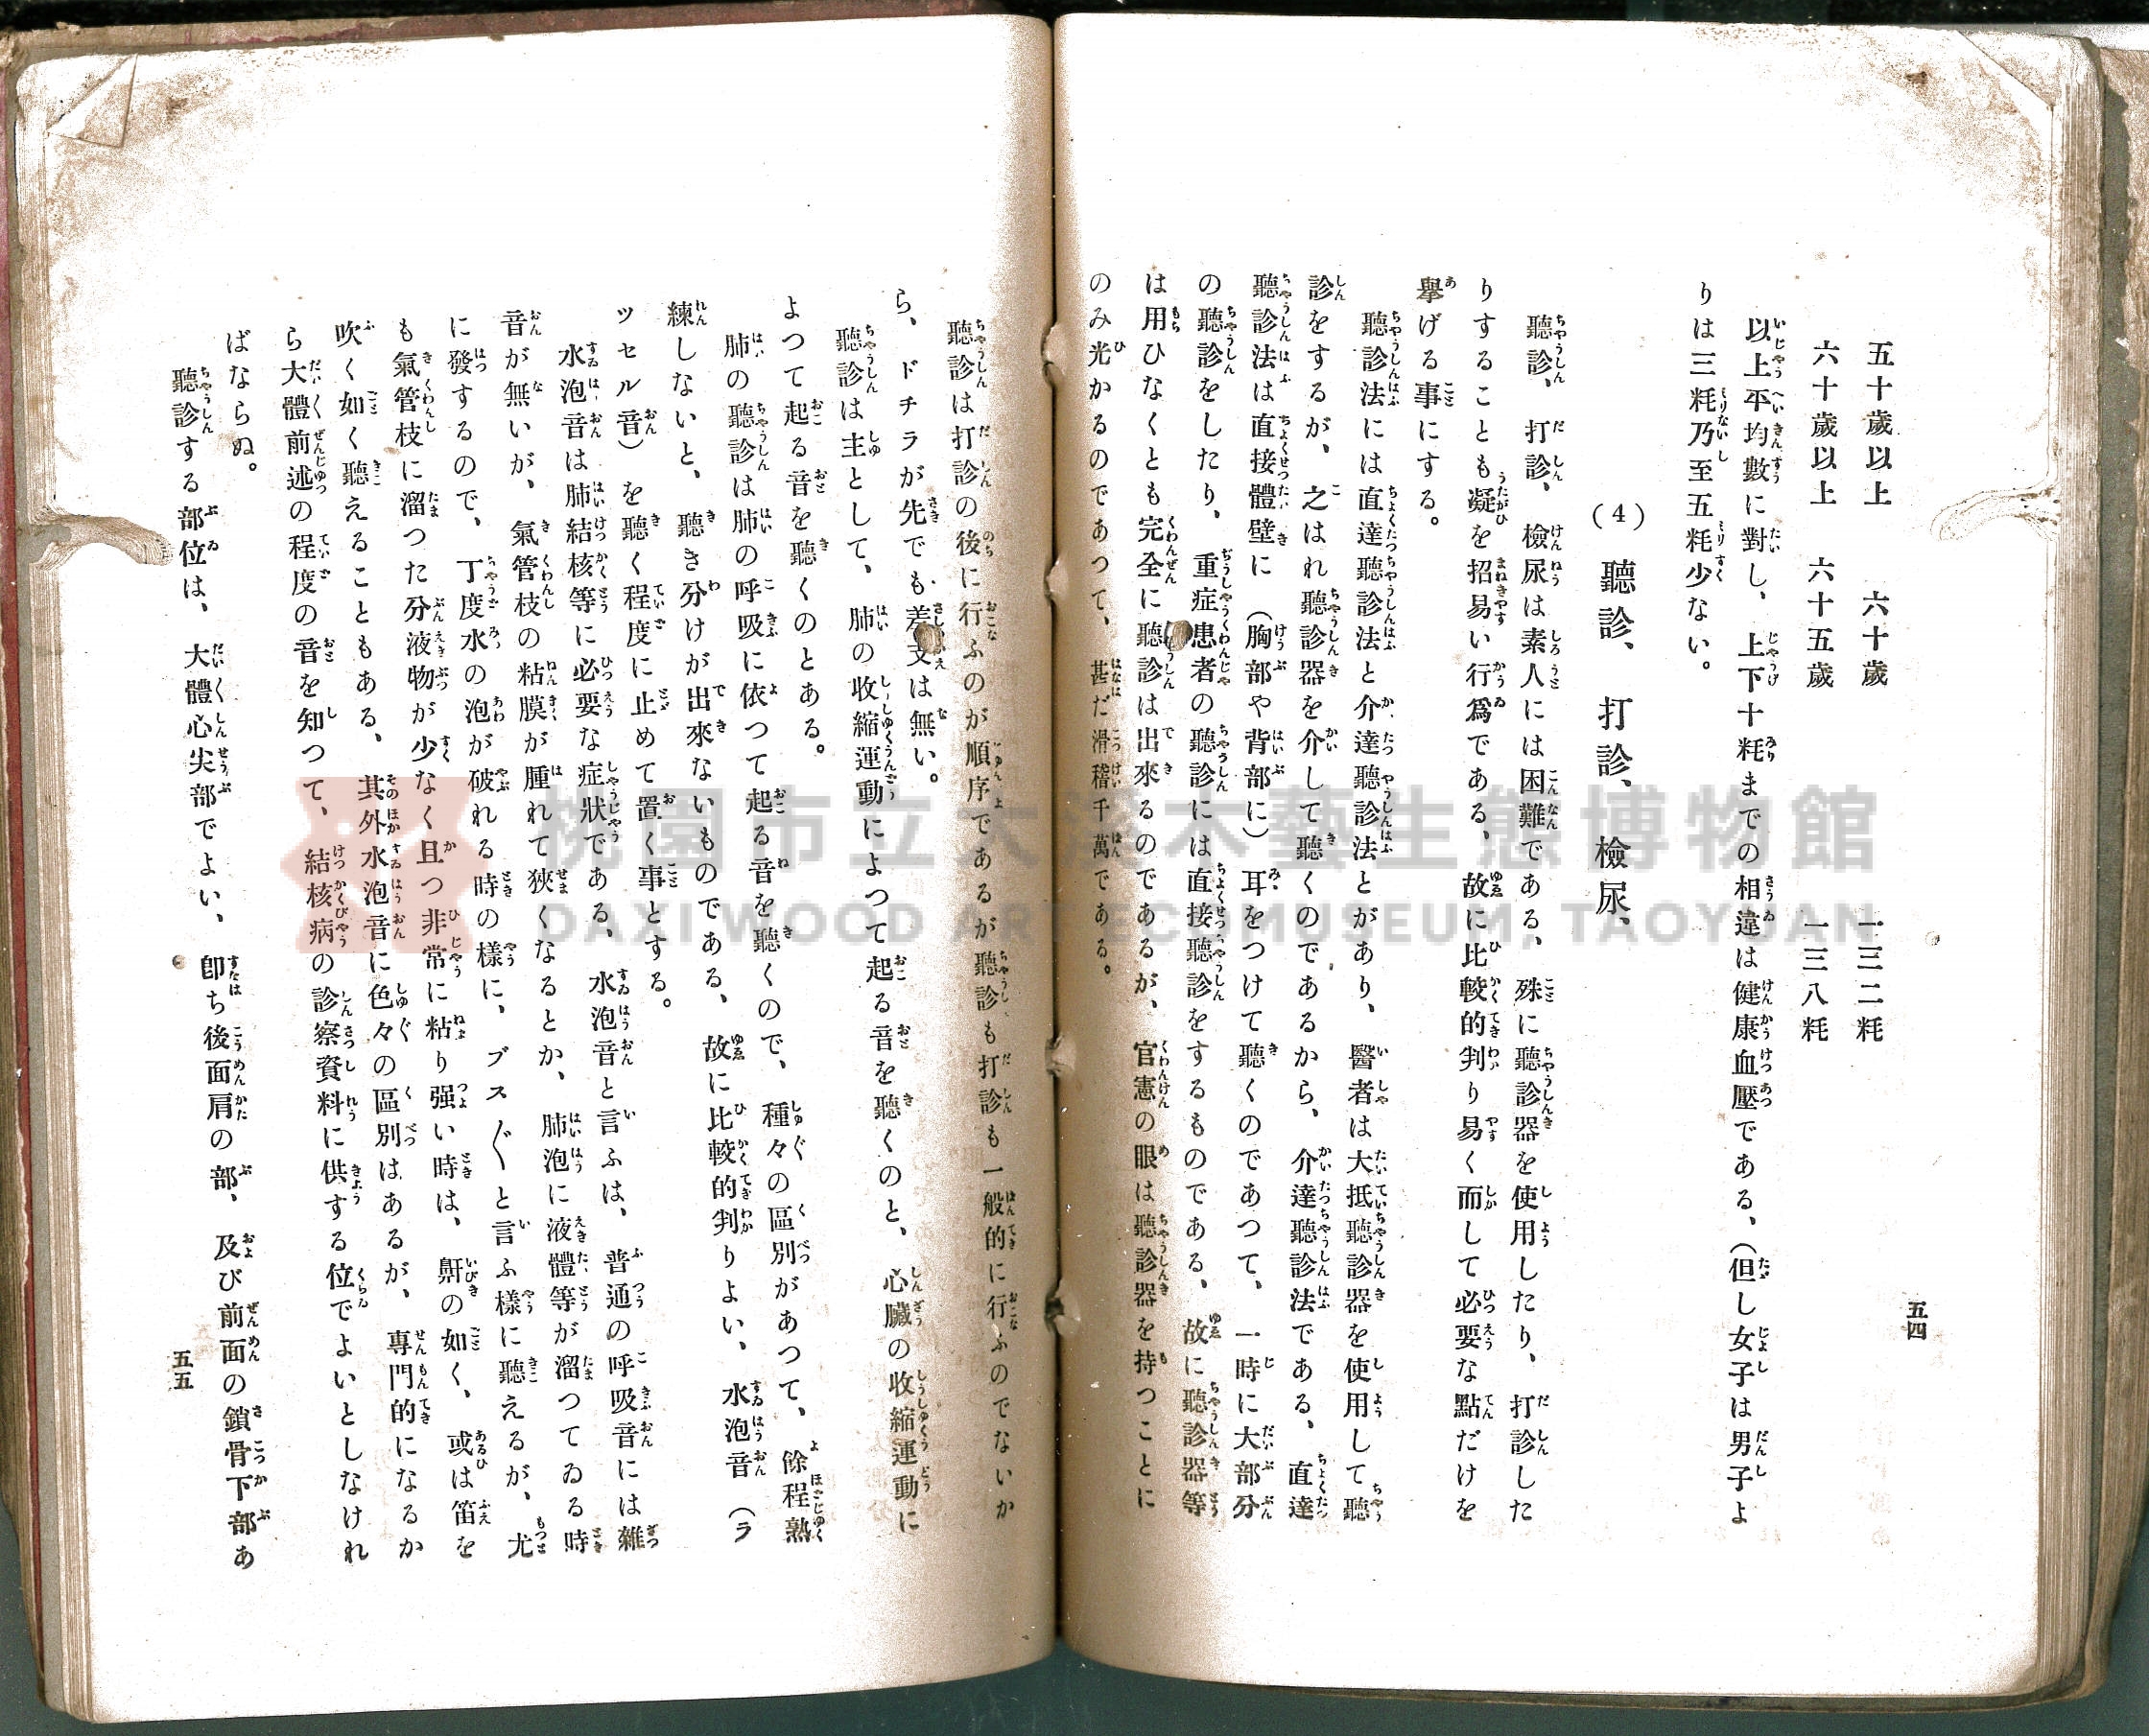 五四
五十歲以上　六十歲　一三二粍
六十歲以上　六十五歲　一三八粍
以上平均數に對し、上下十粍までの相違は健康血壓である、（但し女子は男子よ
りは三粍乃至五粍少ない。
(4) 聽診、打診、檢尿、
聽診、打診、檢尿は素人には困難である、殊に聽診器を使用したり、打診した
りすることも凝を招易い行爲である、故に比較的判り易く而して必要な點だけを
擧げる事にする。
聽診法には直達聽診法と介達聽診法とがあり、醫者は大抵聽診器を使用して聽
診をするが、之はれ聽診器を介して聽くのであるから、介達聽診法である、直達
聽診法は直接體壁に（胸部や背部に）耳をつけて聽くのであつて、一時に大部分
の聽診をしたり、重症患者の聽診には直接聽診をするものである、故に聽診器等
は用ひなくとも完全に聽診は出來るのであるが、官憲の眼は聽診器を持つことに
のみ光かるのであつて、甚だ滑稽千萬である。
聽診は打診の後に行ふのが順序であるが聽診も打診も一般的に行ふのでないか
ら、ドチラが先でも差支は無い。
聽診は主として、肺の收縮運動によつて起る音を聽くのと、心臟の收縮運動に
よつて起る音を聽くのとある。
肺の聽診は肺の呼吸に依つて起る音を聽くので、種々の區別があつて、餘程熟
練しないと、聽き分けが出來ないものである、故に比較的判りよい、水泡音（ラ
ッセル音）を聽く程度に止めて置く事とする。
水泡音は肺結核等に必要な症狀である、水泡音と言ふは、普通の呼吸音には雜
音が無いが、氣管枝の粘膜が腫れて狹くなるとか、肺泡に液體等が溜つてゐる時
に發するので、丁度水の泡が破れる時の樣に、ブス〲と言ふ樣に聽えるが、尤
も氣管枝に溜つた分液物が少なく且つ非常に粘り强い時は、鼾の如く、或は笛を
吹く如く聽えることもある、其外水泡音に色々の區別はあるが、專門的になるか
ら大體前述の程度の音を知つて、結核病の診察資料に供する位でよいとしなけれ
ばならぬ。
聽診する部位は、大體心尖部でよい、卽ち後面肩の部、及び前面の鎖骨下部あ
五五
桃園市立大溪木藝生態博物館
DAXI WOOD ART ECOMUSEUM, TAOYUAN